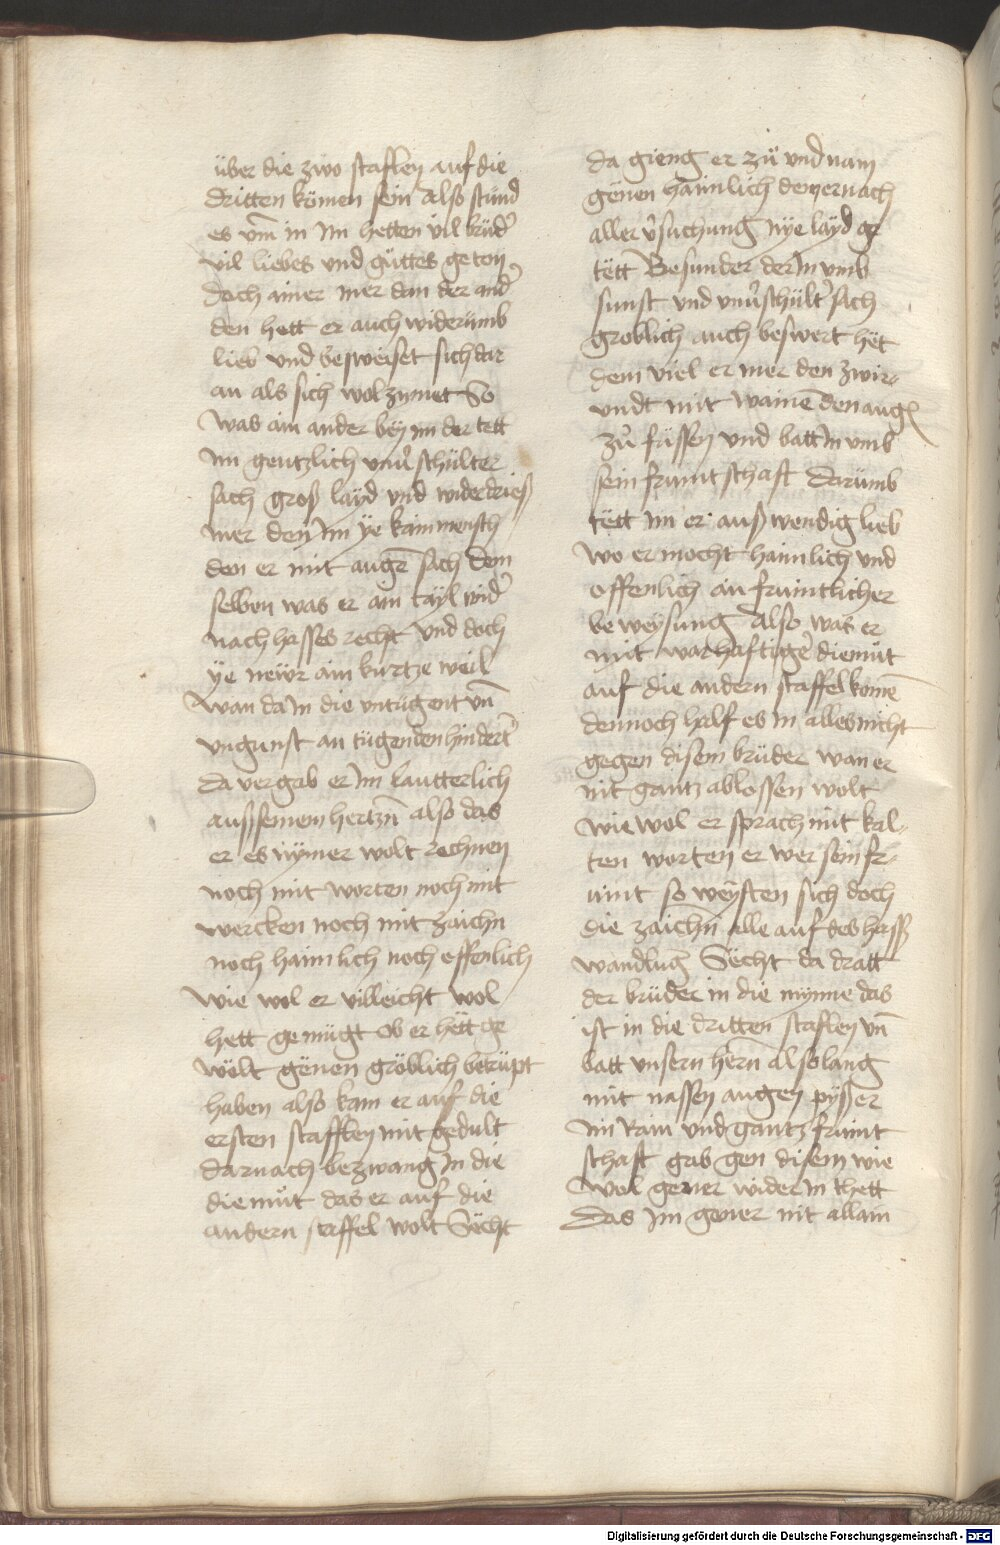 über die zwo staflen auf die
dritten kömen sein Also stünd
es vm̄ in Im hetten vil brüd'
vil liebes und güttes geton
doch ainer mer dan der and'
den hett er auch widerümb
lieb und beweiset sich dar
an als sich wol zymet So
was ain ander bey im der tett
im gentzlich vnu'schülter
sach groß layd vnd widerdrieß
mer den Im ye kain mensch
den er mit augē sach dem
selben was er ain tayl wid'
nach hasses recht vnd doch
ye neür ain kurtze weil
wan da In die vntugent vn̄
vngunst an tügenden hindert
da vergab er Im lautterlich
auß seinem hertzn̄ also das
er es nymer wolt rechnen
noch mit worten noch mit
wercken noch mit zaichn
noch haimlich noch offenlich
wie wol er villeicht wol
hett gemügt ob er hett ge
wölt gënen gröblich betrüpt
haben also kam er auf die
ersten stafflen mit gedult
darnach bezwang In die
diemüt das er auf die
andern staffel wolt Secht
da gieng er zü und nam
gënen haimlich dem er nach
aller v'suchung nye layd ge
tëtt Besunder der In vmb
sunst vnd vnu'schült' sach
groblich auch beswert hët
dem viel er mer den zwir-
undt mit wainēden aug
zü füssen und batt In vmb
sein fruntschaft darümb
tëtt im er außwendig lieb
wo er mocht haimlich und
offenlich an fruntlicher
beweysung Also was er
mit warhaftiger diemüt
auf die andern staffel komē
dennoch half es in alles nicht
gegen disem brüder wan er
nit gantz ablossen wolt
wie wol er sprach mit kal-
ten worten er wer sein fr-
uint so weysten sich doch
die zaichn̄ alle auf des hass
wandlūg Secht da dratt
der brüder in die mynne das
ist in die dritten staflen vn̄
batt unsern hern̄ also lang
mit nassen augen pyß er
im rain und gantz fruint
schaft gab gen disem wie
wol gener wider In thett
das Im gener nit allain
Digitalisierung gefördert durch die Deutsche Forschungsgemeinschaft - DFG